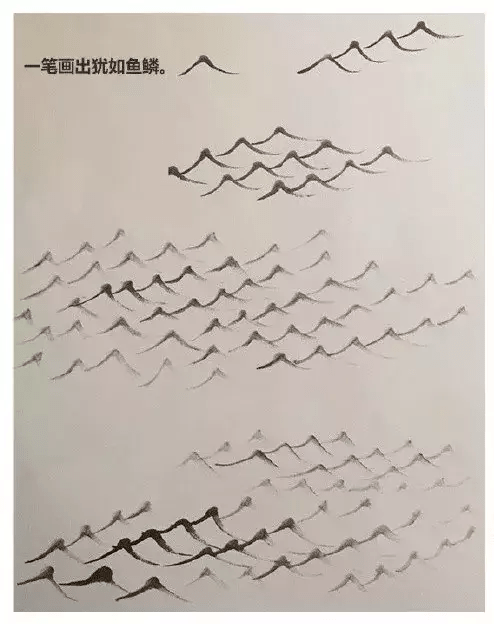 一笔画出犹如鱼鳞。